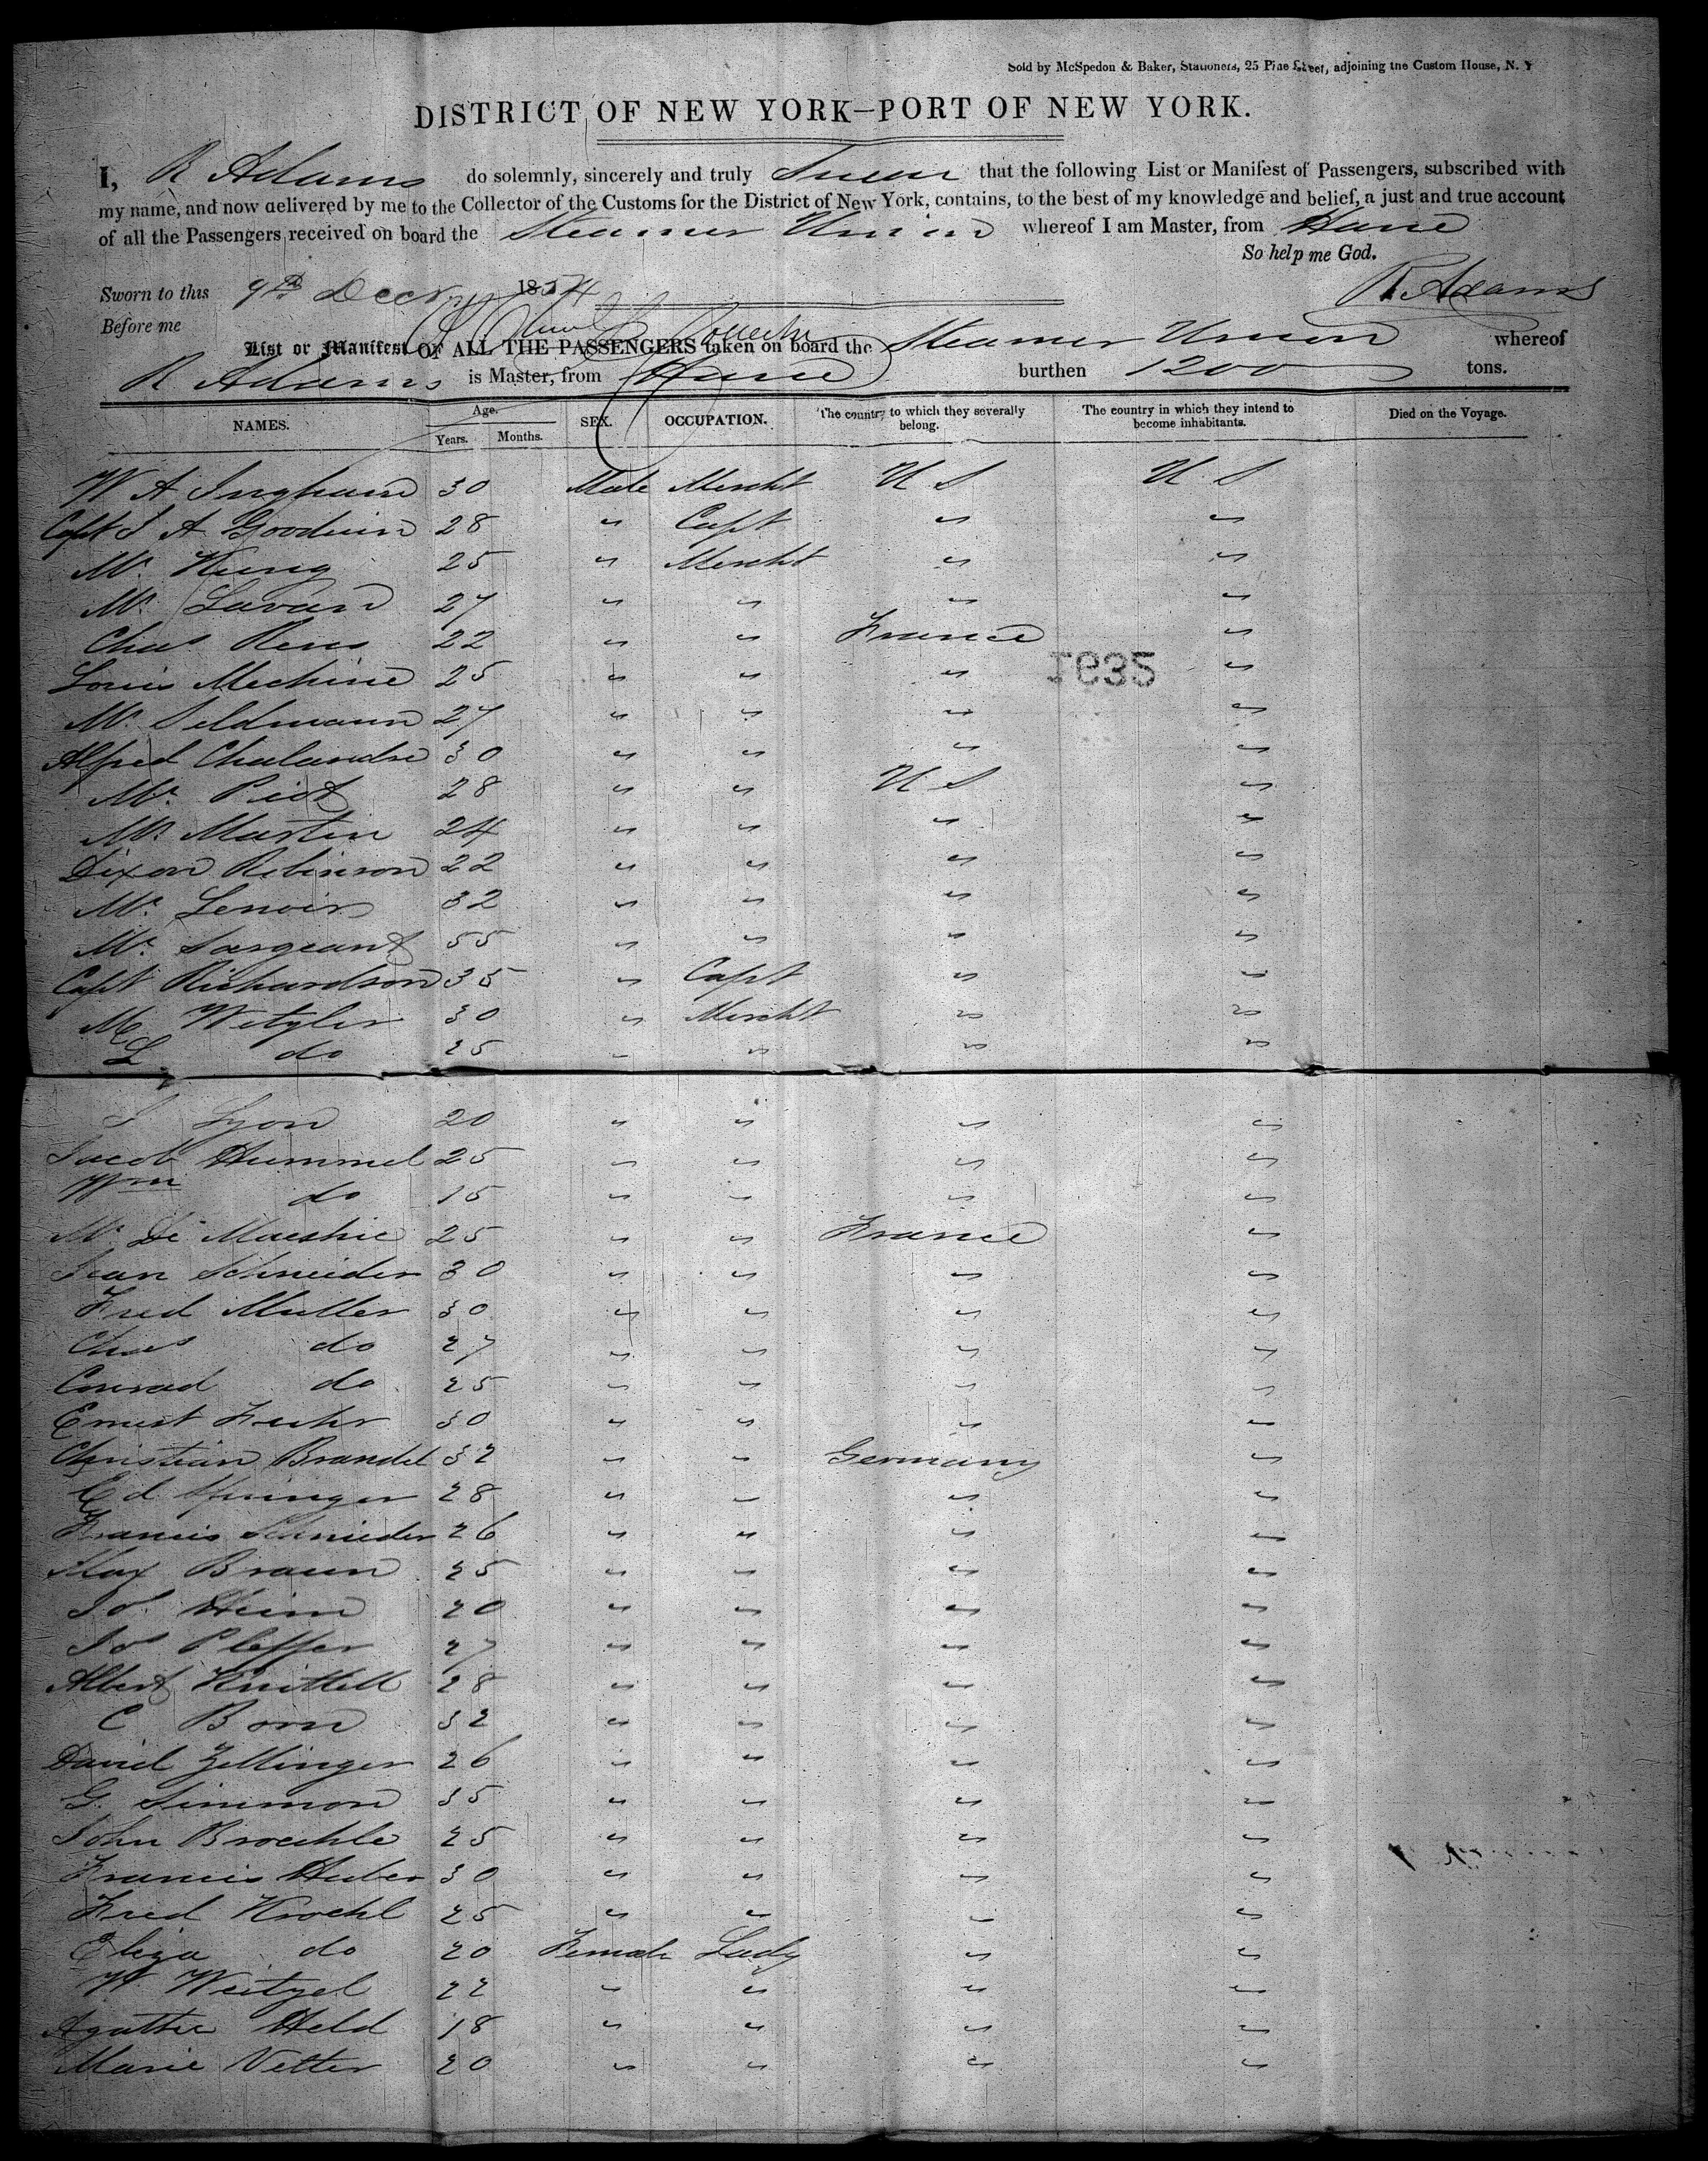 Sold by McSpedon & Baker, Stationers, 25 Pine Street, adjoining the Custom House, N. Y
DISTRICT OF NEW YORK—PORT OF NEW YORK.
I, R Adams do solemnly, sincerely and truly Swear that the following List or Manifest of Passengers, subscribed with
my name, and now delivered by me to the Collector of the Customs for the District of New York, contains, to the best of my knowledge and belief, a just and true account
of all the Passengers received on board the Steamer Union whereof I am Master, from Havre
So help me God.
Sworn to this 9th Decr 1854 R Adams
Before me
List or Manifest OF ALL THE PASSENGERS taken on board the Steamer Union whereof
R Adams is Master, from Havre burthen 1200 tons.
NAMES. Age. Years. Months. SEX. OCCUPATION. The country to which they severally belong. The country in which they intend to become inhabitants. Died on the Voyage.
W A Ingham 30 Male Mercht U S U. S
Capt S A Goodwin 28 " Capt " "
Mr. King 25 " Mercht " "
Mr. Lavan 27 " " " "
Chas Rens 22 " " France "
1935
Louis Mechine 25 " " " "
Mr. Seldmann 27 " " " "
Alfred Chalandre 30 " " " "
Mr. Piot 28 " " U S "
Mr. Martin 24 " " " "
Dixon Robinson 22 " " " "
Mr. Lenoir 32 " " " "
Mr. Sargeant 55 " " " "
Capt Richardson 35 " Capt " "
M Wetzler 30 " Mercht " "
L do 25 " " " "
S Lyon 20 " " " "
Jacob Hummel 25 " " " "
Wm do 15 " " " "
Mr. De 25 " " France "
Jean Schneider 30 " " " "
Fred Muller 30 " " " "
Chas do 27 " " " "
Conrad do 25 " " " "
Ernest Fuhr 30 " " " "
Christian Brandel 32 " " Germany "
Ed Springer 28 " " " "
Francis Schnieder 26 " " " "
Max Braun 25 " " " "
Jos. Heim 20 " " " "
Jos Pleffer 27 " " " "
Albert Knittell 28 " " " "
C Born 32 " " " "
David Zellinger 26 " " " "
G. Simmon 35 " " " "
John Broechle 25 " " " "
Francis Huber 30 " " " "
Fred Kroehl 25 " " " "
Eliza do 20 Female Lady " "
W Weitzel 22 " " " "
Agathe Held 18 " " " "
Marie Vetter 20 " " " "